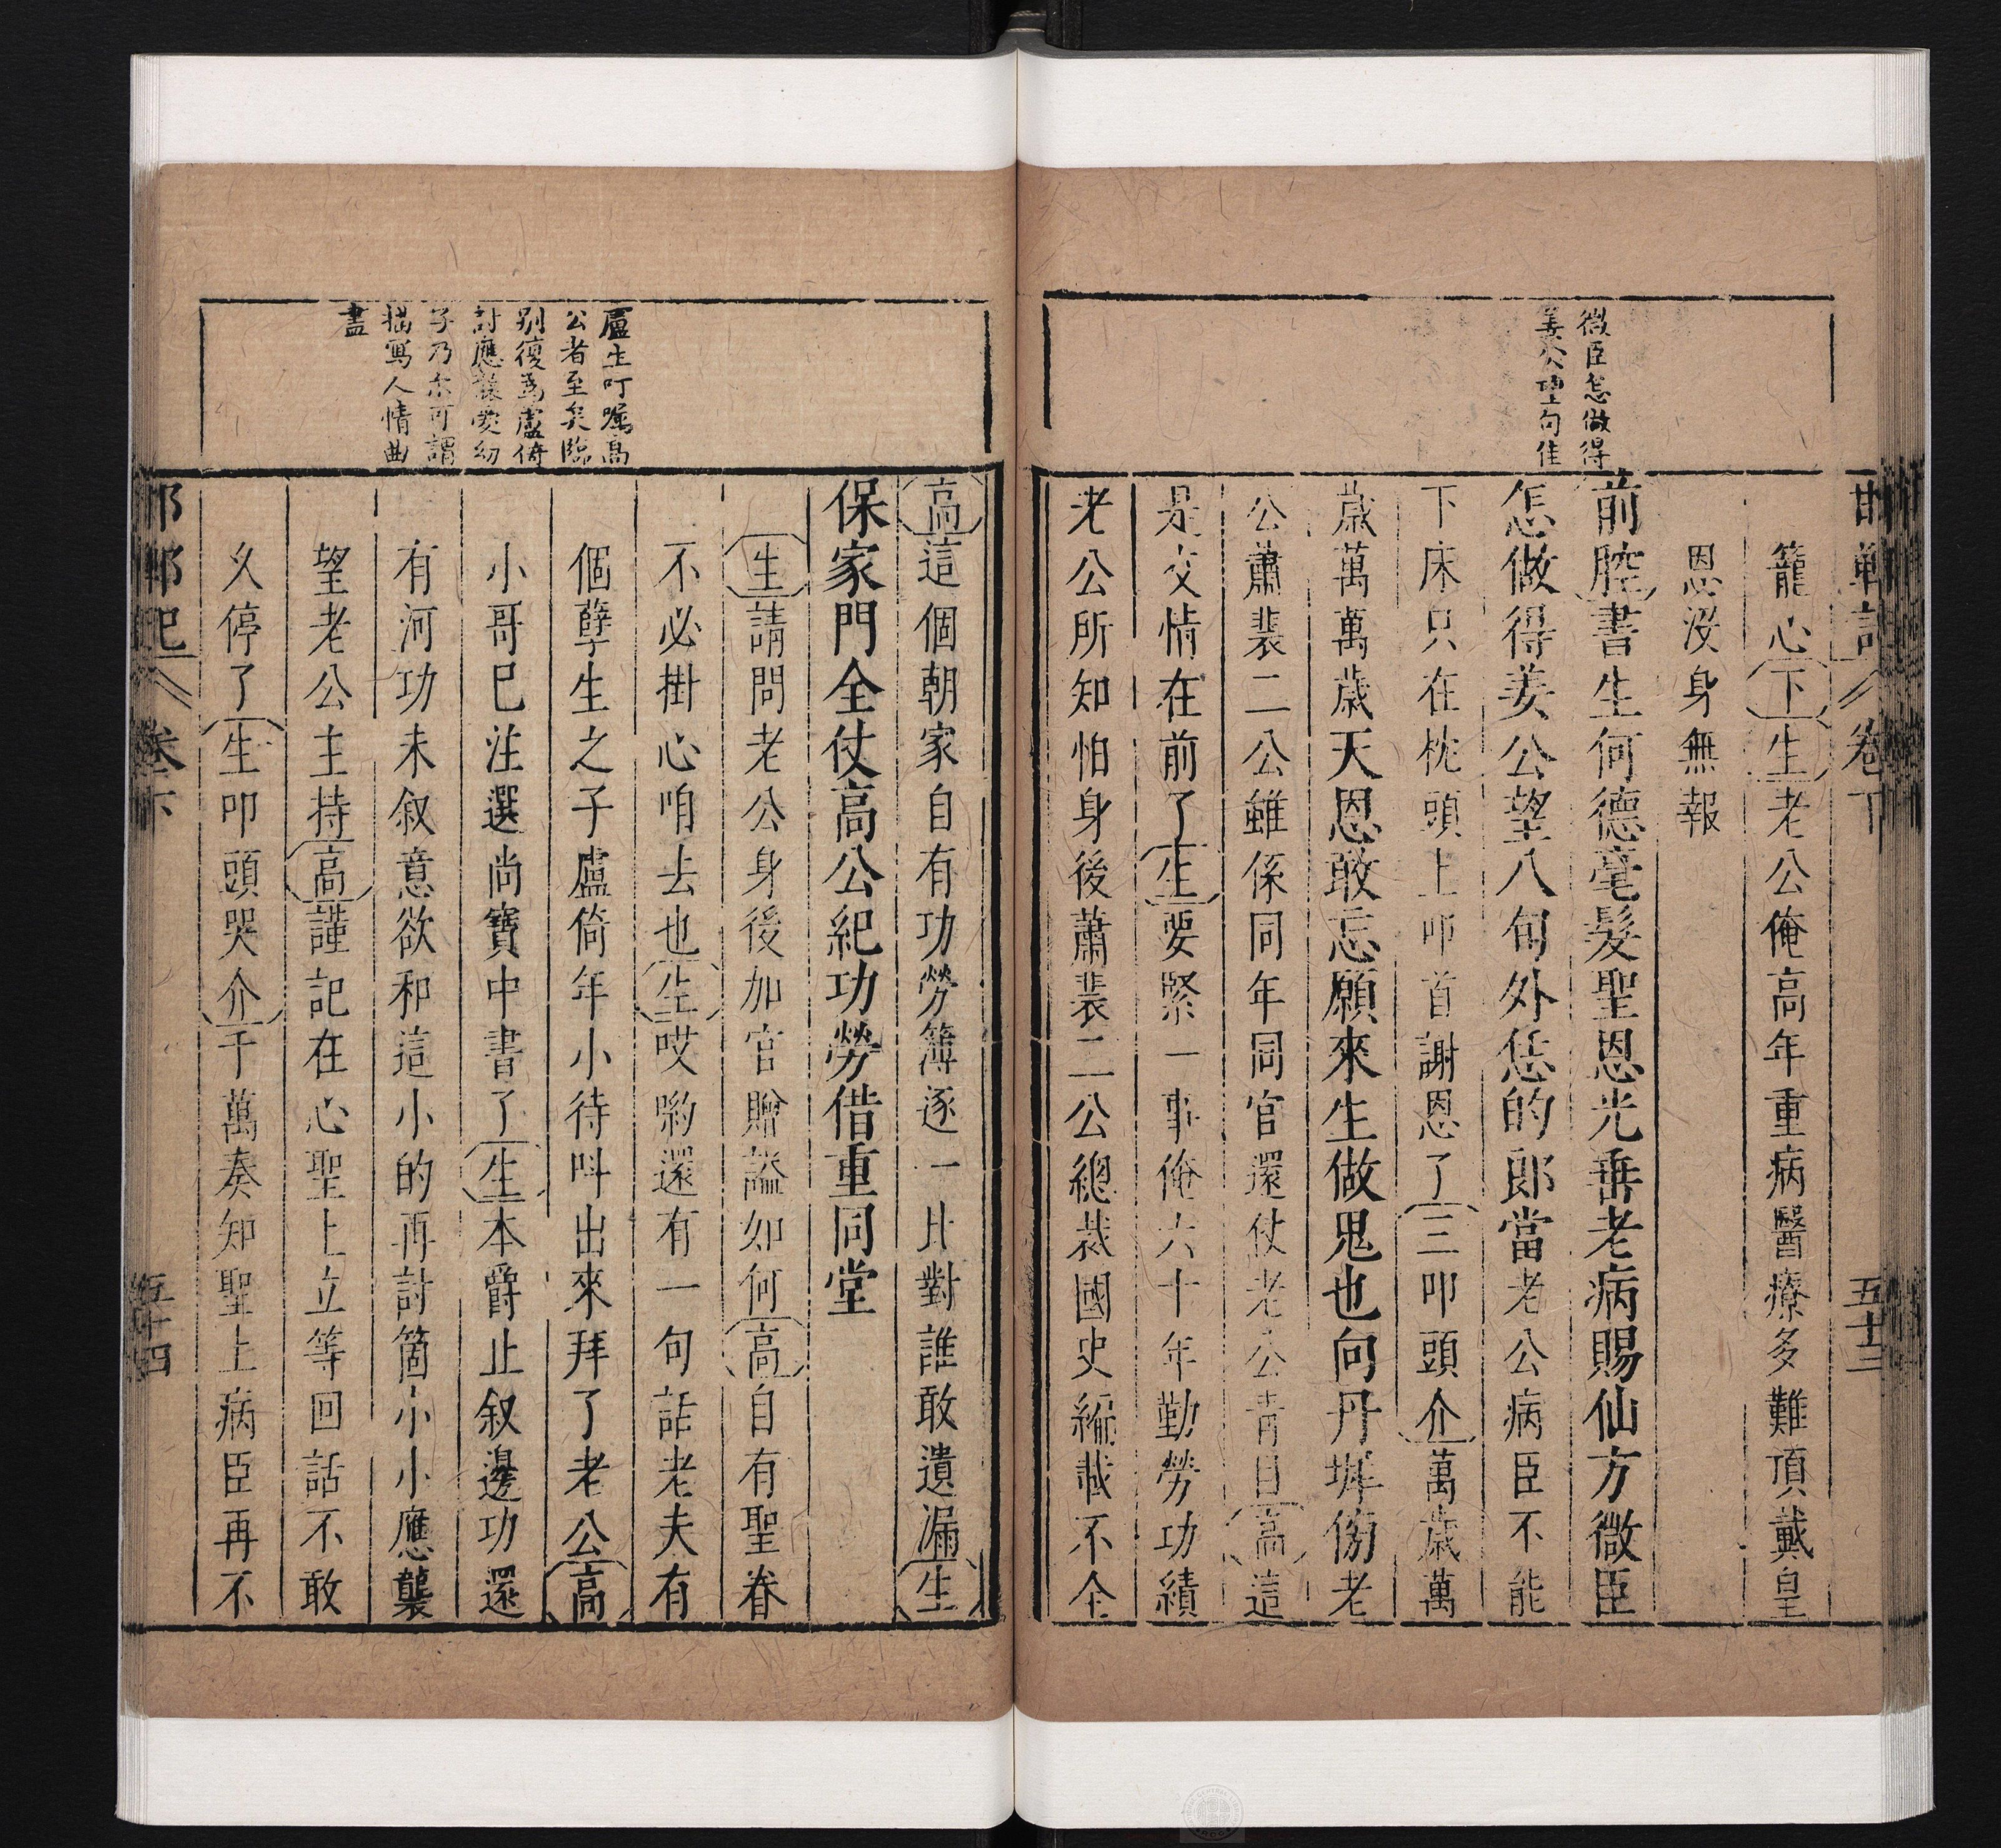 微臣怎做得
姜公望句佳
邯鄲記 卷下 五十三
籠心下生老公俺高年重病醫療多難頂戴皇
恩沒身無報
前腔書生何德毫髮聖恩光垂老病賜仙方微臣
怎做得姜公望八旬外恁的郎當老公病臣不能
下床只在枕頭上叩首謝恩了三叩頭介萬歲萬
歲萬萬歲天恩敢忘願來生做鬼也向丹墀傍老
公蕭裴二公雖係同年同官還仗老公青目高這
是交情在前了生要緊一事俺六十年勤勞功績
老公所知怕身後蕭裴二公總裁國史編載不全
盧生叮嘱高
公者至矣臨
別復爲盧倚
討應襲愛幼
子乃尔可謂
描寫人情曲
盡
高這個朝家自有功勞簿逐一比對誰敢遺漏生
保家門全仗高公紀功勞借重同堂
生請問老公身後加官贈謚如何高自有聖眷
不必掛心咱去也生哎喲還有一句話老夫有
個孽生之子盧倚年小待呌出來拜了老公高
小哥巳注選尚寶中書了生本爵止叙邊功還
有河功未叙意欲和這小的再討箇小小應襲
望老公主持高謹記在心聖上立等回話不敢
久停了生叩頭哭介千萬奏知聖上病臣再不
邯鄲記 卷下 五十四